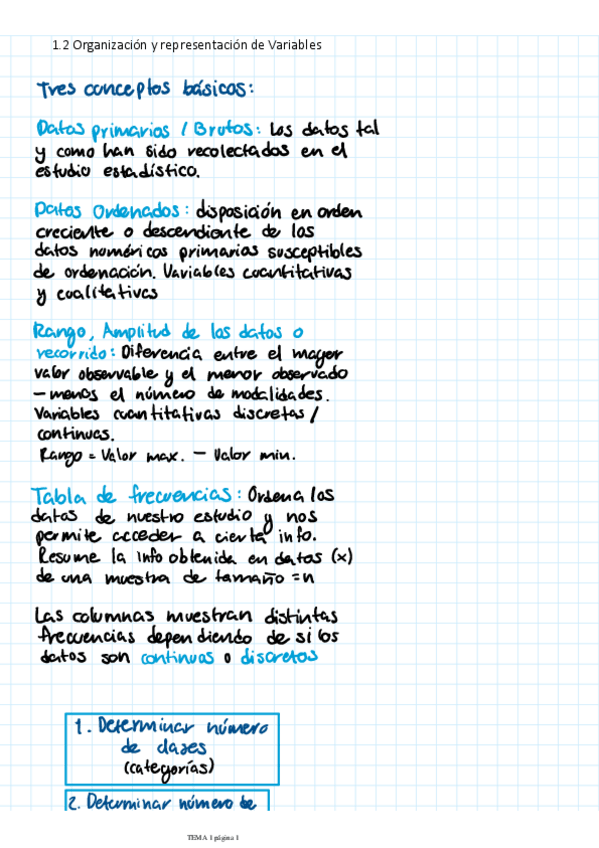 1.2 Organización y representación de Variables
Tres conceptos básicos:
Datos primarios / Brutos: Los datos tal
y como han sido recolectados en el
estudio estadístico.
Datos Ordenados: disposición en orden
creciente o descendiente de los
datos numéricos primarios susceptibles
de ordenación. Variables cuantitativas
y cualitativas
Rango, Amplitud de los datos o
recorrido: Diferencia entre el mayor
valor observable y el menor observado
- menos el número de modalidades.
Variables cuantitativas discretas /
continuas.
Rango = Valor max. - Valor min.
Tabla de frecuencias: Ordena los
datos de nuestro estudio y nos
permite acceder a cierta info.
Resume la info obtenida en datos (x)
de una muestra de tamaño = n
Las columnas muestran distintas
frecuencias dependiendo de si los
datos son continuos o discretos
1. Determinar número
de clases
(categorías)
2. Determinar número de
TEMA 1 página 1